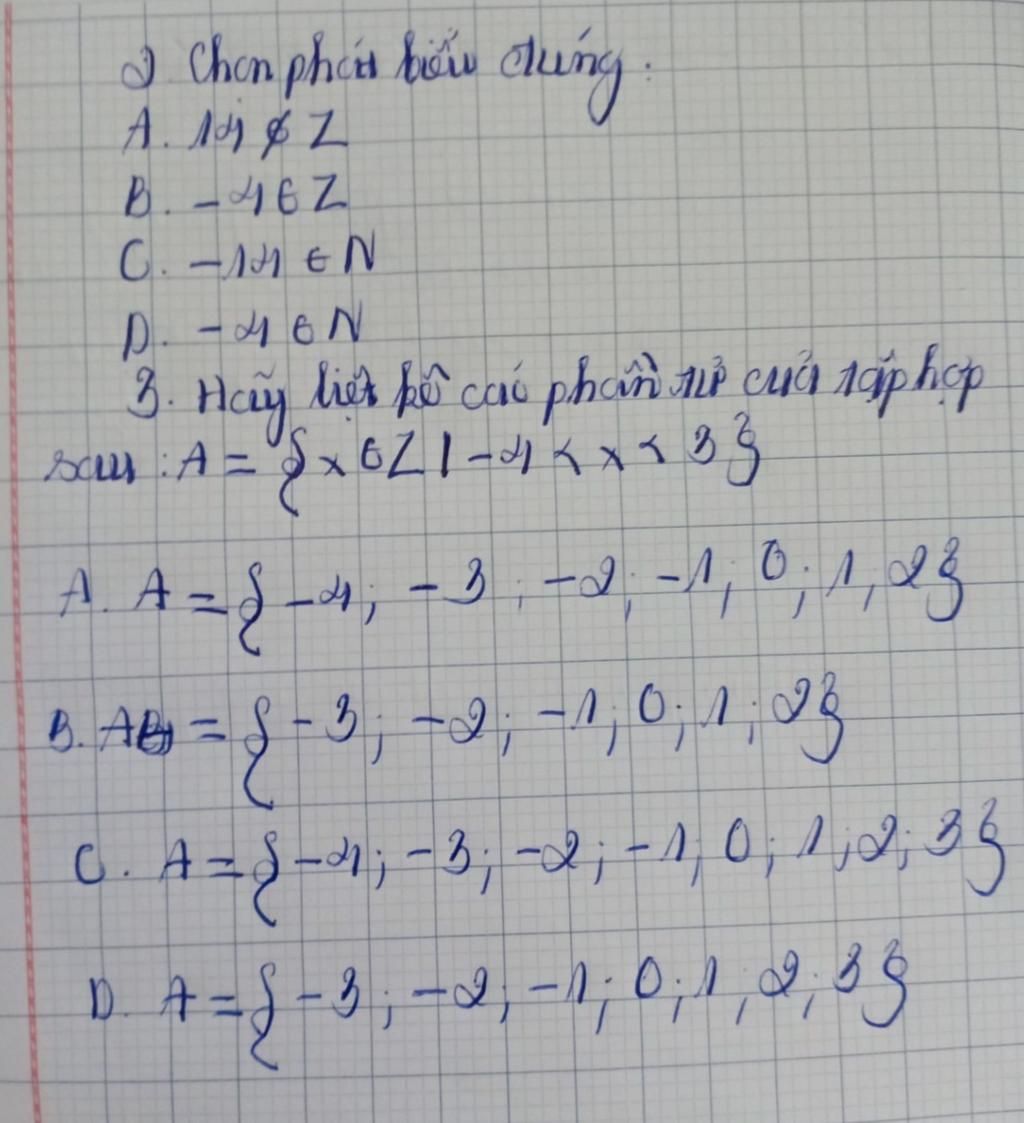 2 Chọn phát biểu đúng.
A. 14 ∉ Z
B. -4 ∈ Z
C. -14 ∈ N
D. -4 ∈ N
3. Hãy liệt kê các phần tử của tập hợp
sau: A = {x ∈ Z | -4 < x < 3}
A. A = {-4; -3; -2; -1; 0; 1; 2}
B. A = {-3; -2; -1; 0; 1; 2}
C. A = {-4; -3; -2; -1; 0; 1; 2; 3}
D. A = {-3; -2; -1; 0; 1; 2; 3}